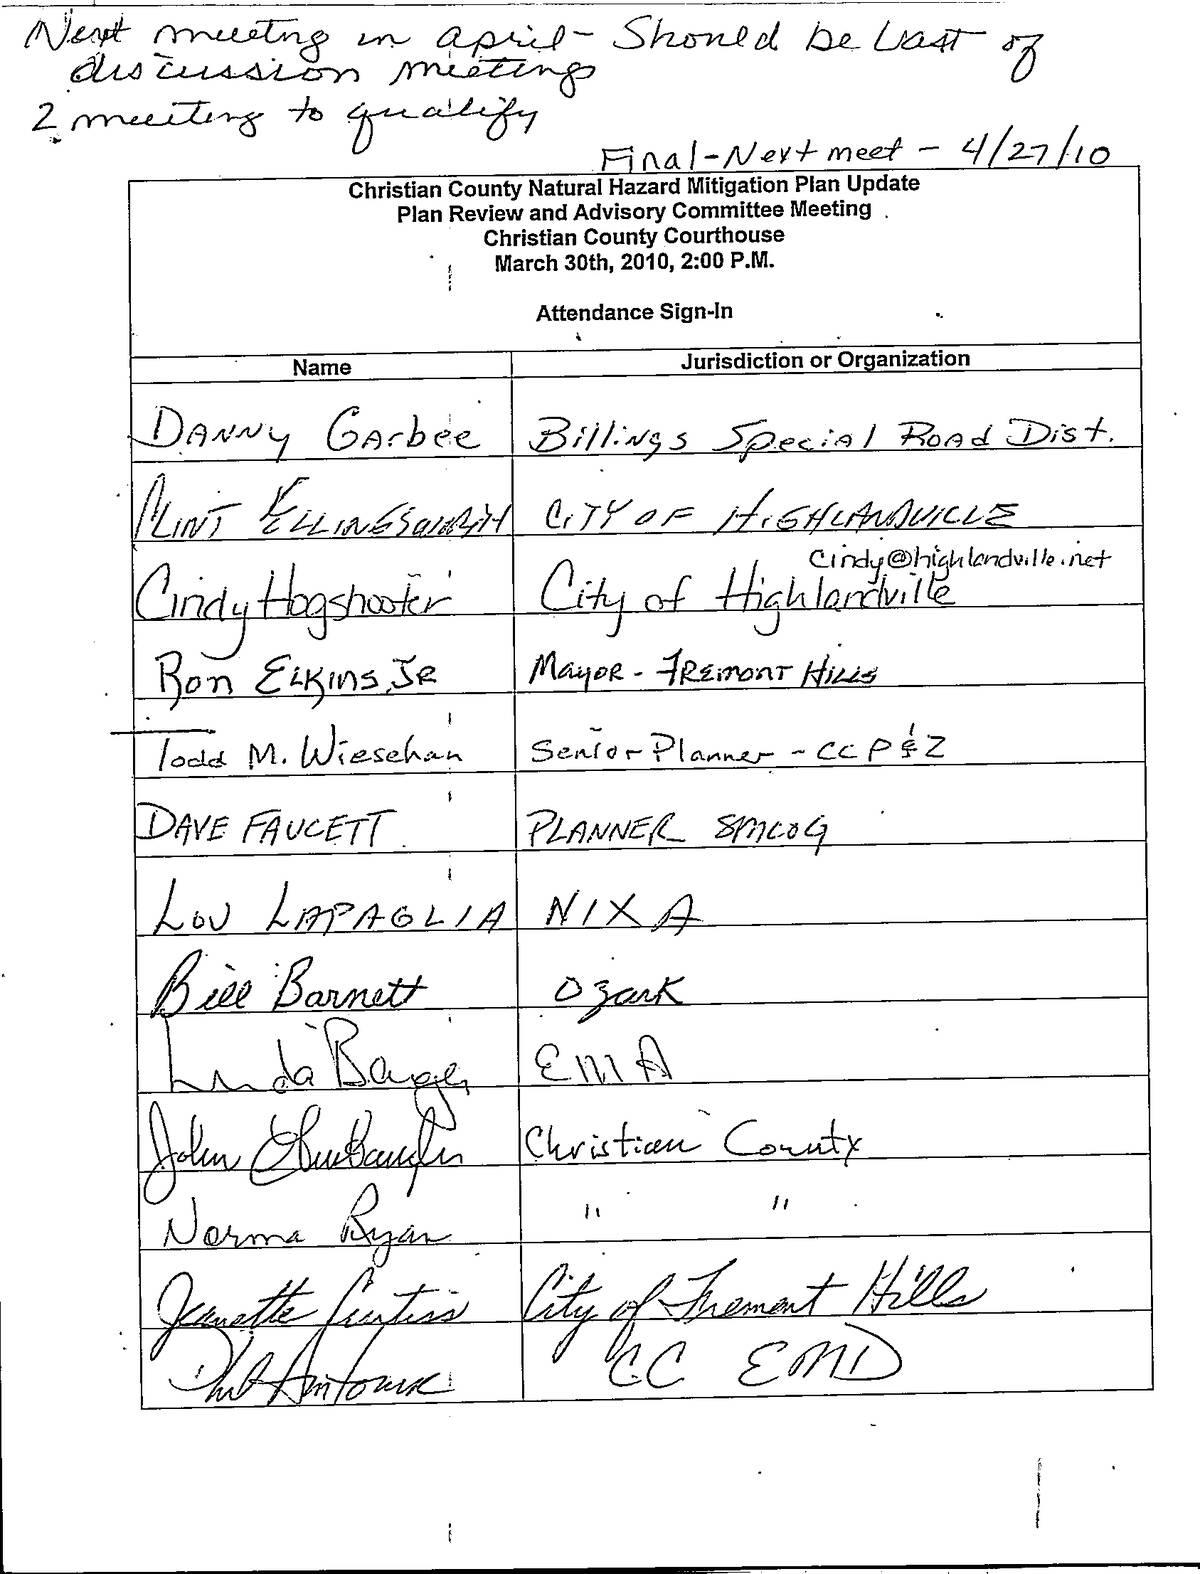 Next meeting in april - Should be last of
discussion meetings
2 meeting to qualify
Final - Next meet - 4/27/10
Christian County Natural Hazard Mitigation Plan Update
Plan Review and Advisory Committee Meeting
Christian County Courthouse
March 30th, 2010, 2:00 P.M.
Attendance Sign-In
Name Jurisdiction or Organization
Danny Garbee Billings Special Road Dist.
Clint Ellingsworth City of Highlandville
cindy@highlandville.net
Cindy Hogshooter City of Highlandville
Ron Elkins, Jr Mayor - Fremont Hills
Todd M. Wiesehan Senior Planner - CC P & Z
DAVE FAUCETT PLANNER SMCOG
LOU LAPAGLIA NIXA
Bill Barnett Ozark
Linda EMA
John Christian County
Norma Ryan " "
Jeanette Curtiss City of Fremont Hills
Phil CC EMD